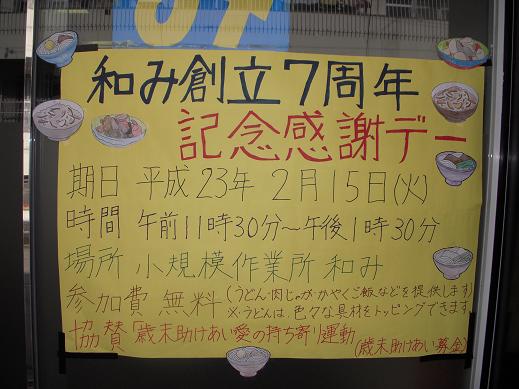 和み創立7周年
記念感謝デー
期日 平成23年 2月15日(火)
時間 午前11時30分～午後1時30分
場所 小規模作業所 和み
参加費 無料 (うどん・肉じゃが・かやくご飯などを提供します)
※うどんは、色々な具材をトッピングできます。
協賛「歳末助けあい愛の持ち寄り」運動
(歳末助けあい募金)